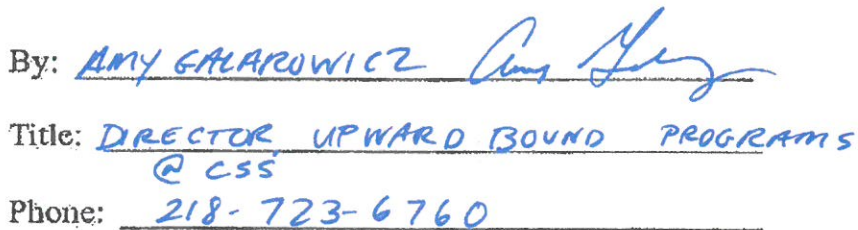 By: AMY GALAROWICZ Amy Gal
Title: DIRECTOR UPWARD BOUND PROGRAMS
@ CSS
Phone: 218-723-6760